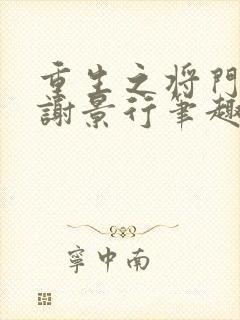 重生之将門
謝景行筆趣
寧中南